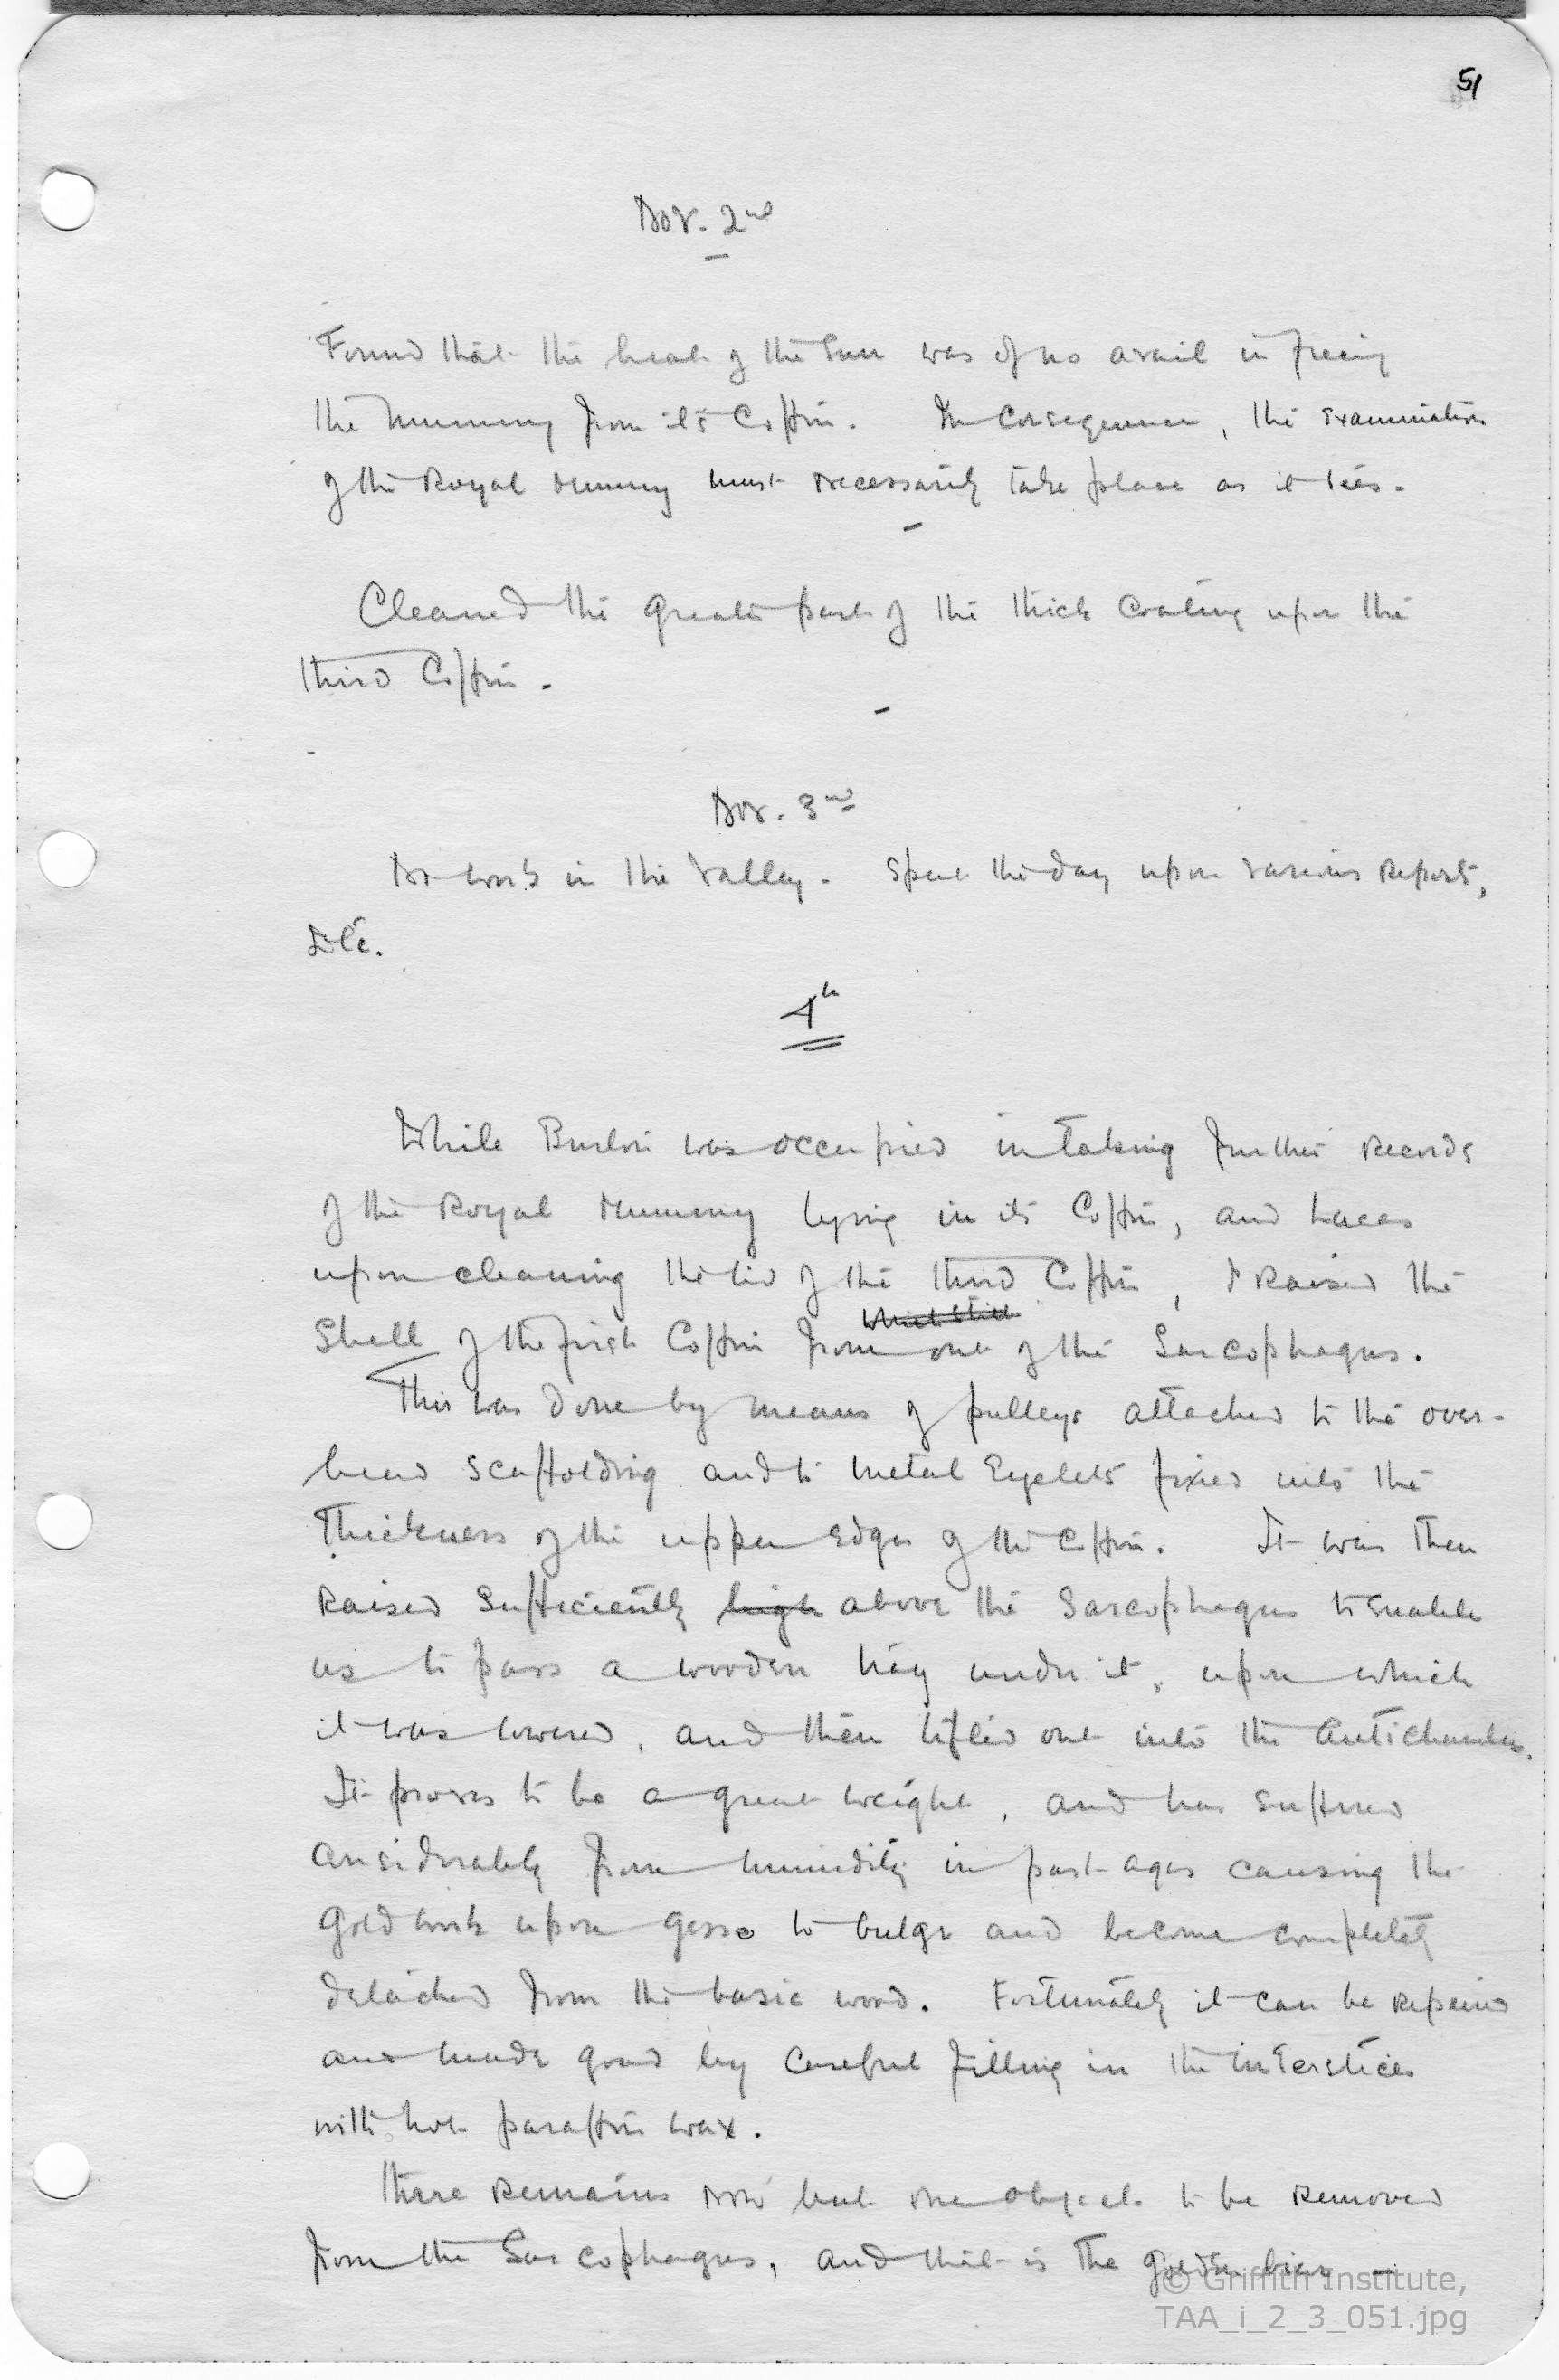 51
Nov. 2nd
Found that the heat of the sun was of no avail in freeing
the mummy from its coffin. In consequence, the examination
of the Royal mummy must necessarily take place as it lies.
Cleaned the greater part of the thick coating upon the
third coffin.
Nov. 3rd
No work in the Valley. Spent the day upon various Reports,
Etc.
4th
While Burton was occupied in taking further records
of the Royal Mummy lying in its Coffin, and Lucas
upon cleaning the lid of the third Coffin, I raised the
which still
Shell of the first Coffin from out of the Sarcophagus.
This was done by means of pulleys attached to the over-
head scaffolding and to metal Eyelets fixed into the
Thickness of the upper edges of the coffin. It was then
Raised Sufficiently high above the Sarcophagus to enable
us to pass a wooden tray under it, upon which
it was lowered, and then lifted out into the Antichamber.
It proves to be a great weight, and has suffered
considerably from humidity in past ages causing the
gold work upon gesso to bulge and become completely
detached from the basic wood. Fortunately it can be repaired
and made good by careful filling in the interstices
with hot paraffin wax.
There Remains now but one object to be Removed
from the Sarcophagus, and that is the golden bier –
© Griffith Institute,
TAA_i_2_3_051.jpg